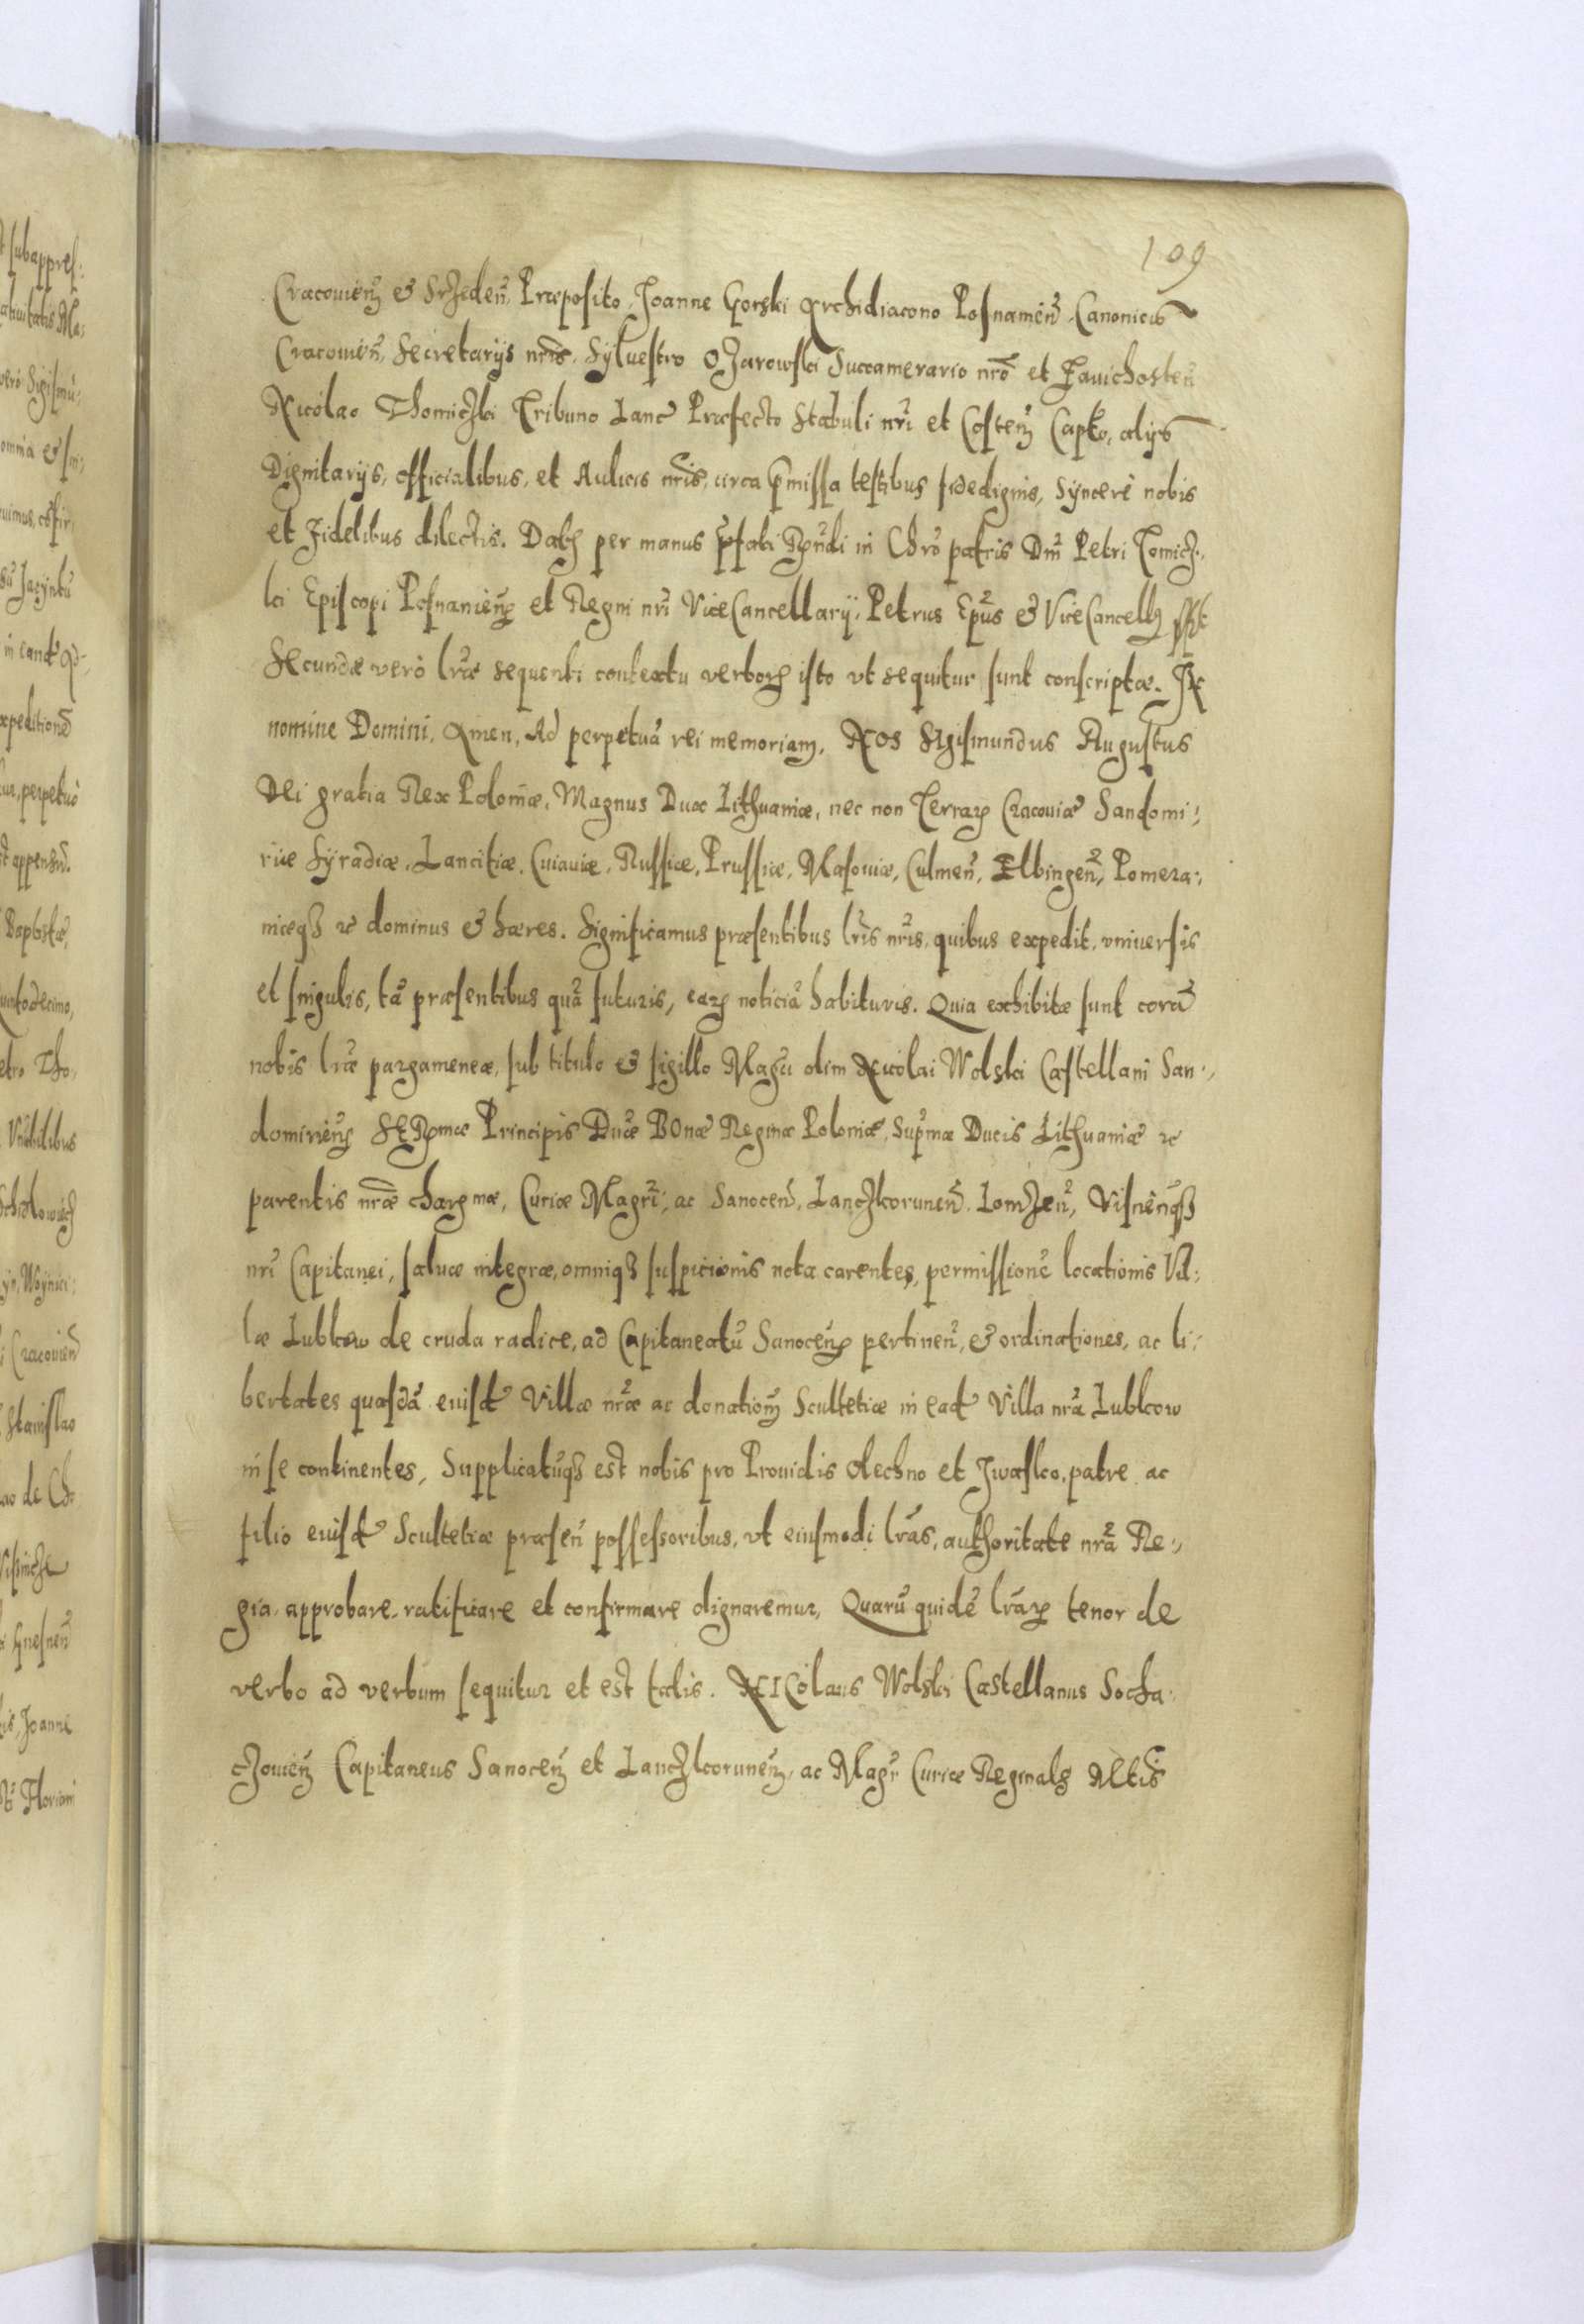 109
Cracovien̄ & Srzeden̄, Præposito, Joanne Gorski Archidiacono Posnamen̄, Canonicis
Cracovien̄, Secretarijs nr̄is, Syluestro Ozarowski Succamerario nr̄o et Zauichosten̄
Nicolao Thomiczki Tribuno Lanc̄ Præfecto Stabuli nr̄i et Costen̄ Capt̄o, alijs
Dignitarijs, Officialibus, et Aulicis nr̄is, circa p̄missa testibus fidedignis, Syncerè nobis
et Fidelibus dilectis. Datꝫ per manus p̄fati Rn̄di in Chrō patris Dn̄i Petri Tomicz-,
ki Episcopi Posnanien̄ et Regni nr̄i ViceCancellarij, Petrus Ep̄us & ViceCancellꝰ sst
Secundæ verò lr̄æ sequenti contextu verborꝝ isto vt sequitur sunt conscriptæ. IN
nomine Domini, Amen, Ad perpetuā rei memoriam, NOS SIgismundus Augustus
Dei gratia Rex Poloniæ, Magnus Dux Lithuaniæ, nec non Terrarꝝ Cracouiæ Sandomi-,
riæ Syradiæ, Lancitiæ, Cuiauiæ, Russiæ, Prussiæ, Masouiæ, Culmen̄, Elbingen̄, Pomera-,
niæqꝫ ꝛc dominus & hæres. Significamus præsentibus lr̄is nr̄is, quibus expedit, vniuersis
et singulis, tā præsentibus quā futuris, earꝝ noticiā habituris. Quia exhibitæ sunt corā
nobis lr̄æ pargameneæ, sub titulo & sigillo Magci olim Nicolai Wolski Castellani San-,
domirien̄ SERmæ Principis Dn̄æ BOnæ Reginæ Poloniæ, Sup̄mæ Ducis Lithuaniæ ꝛc
parentis nr̄æ charꝫmæ, Curiæ Magr̄i, ac Sanocen̄, Lanczkorunen̄, Lomzen̄, Visnen̄qꝫ
nr̄i Capitanei, saluæ integræ, omniqꝫ suspicionis nota carentes, permissionē locationis Vil-,
læ Lubkow de cruda radice, ad Capitaneatū Sanocen̄ pertinen̄, & ordinationes, ac li-,
bertates quasdā eiusd̄ Villæ nr̄æ ac donationē Scultetiæ in ead̄ Villa nr̄a Lubkow
in se continentes, Supplicatūqꝫ est nobis pro Prouidis Olechno et Jwasko, patre ac
filio eiusd̄ Scultetiæ præsen̄ possessoribus, vt eiusmodi lr̄as, authoritate nr̄a Re-,
gia, approbare, ratificare et confirmare dignaremur, Quarū quidē lr̄arꝝ tenor de
verbo ad verbum sequitur et est talis. NICOlaus Wolski Castellanus Socha-
czouien̄ Capitaneus Sanocen̄ et Lanczkorunen̄, ac Magr̄ Curiæ Reginalꝭ Mtis